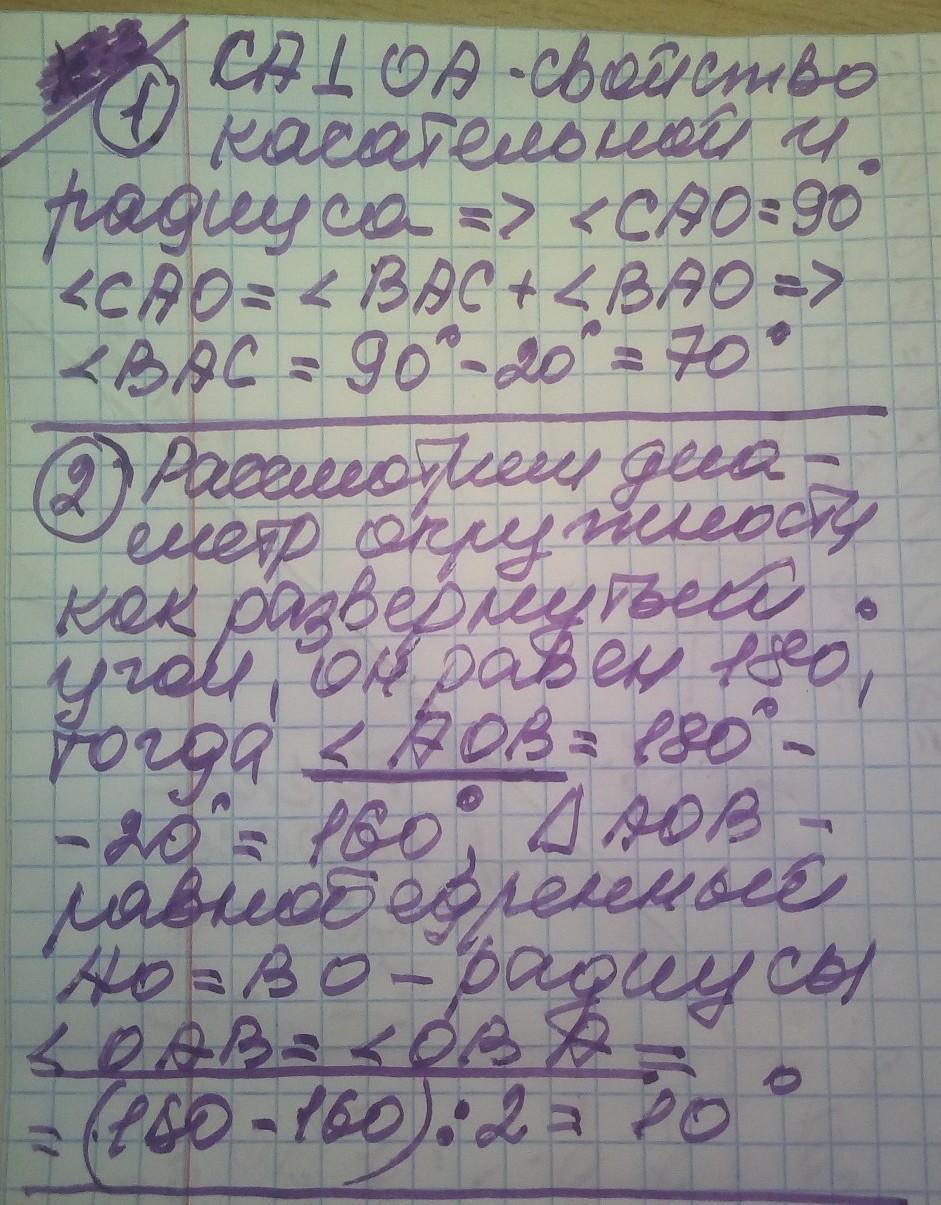 ① CA⊥OA - свойство
касательной и
радиуса => <CAO=90°
<CAO = < BAC + <BAO =>
<BAC = 90° - 20° = 70°
② Рассмотрим диа-
метр окружности
как развернутый
угол, он равен 180°,
тогда < AOB = 180° -
- 20° = 160°, △ AOB -
равнобедренный
AO = BO - радиусы
< OAB = < OBA =
= (180 - 160) : 2 = 10°